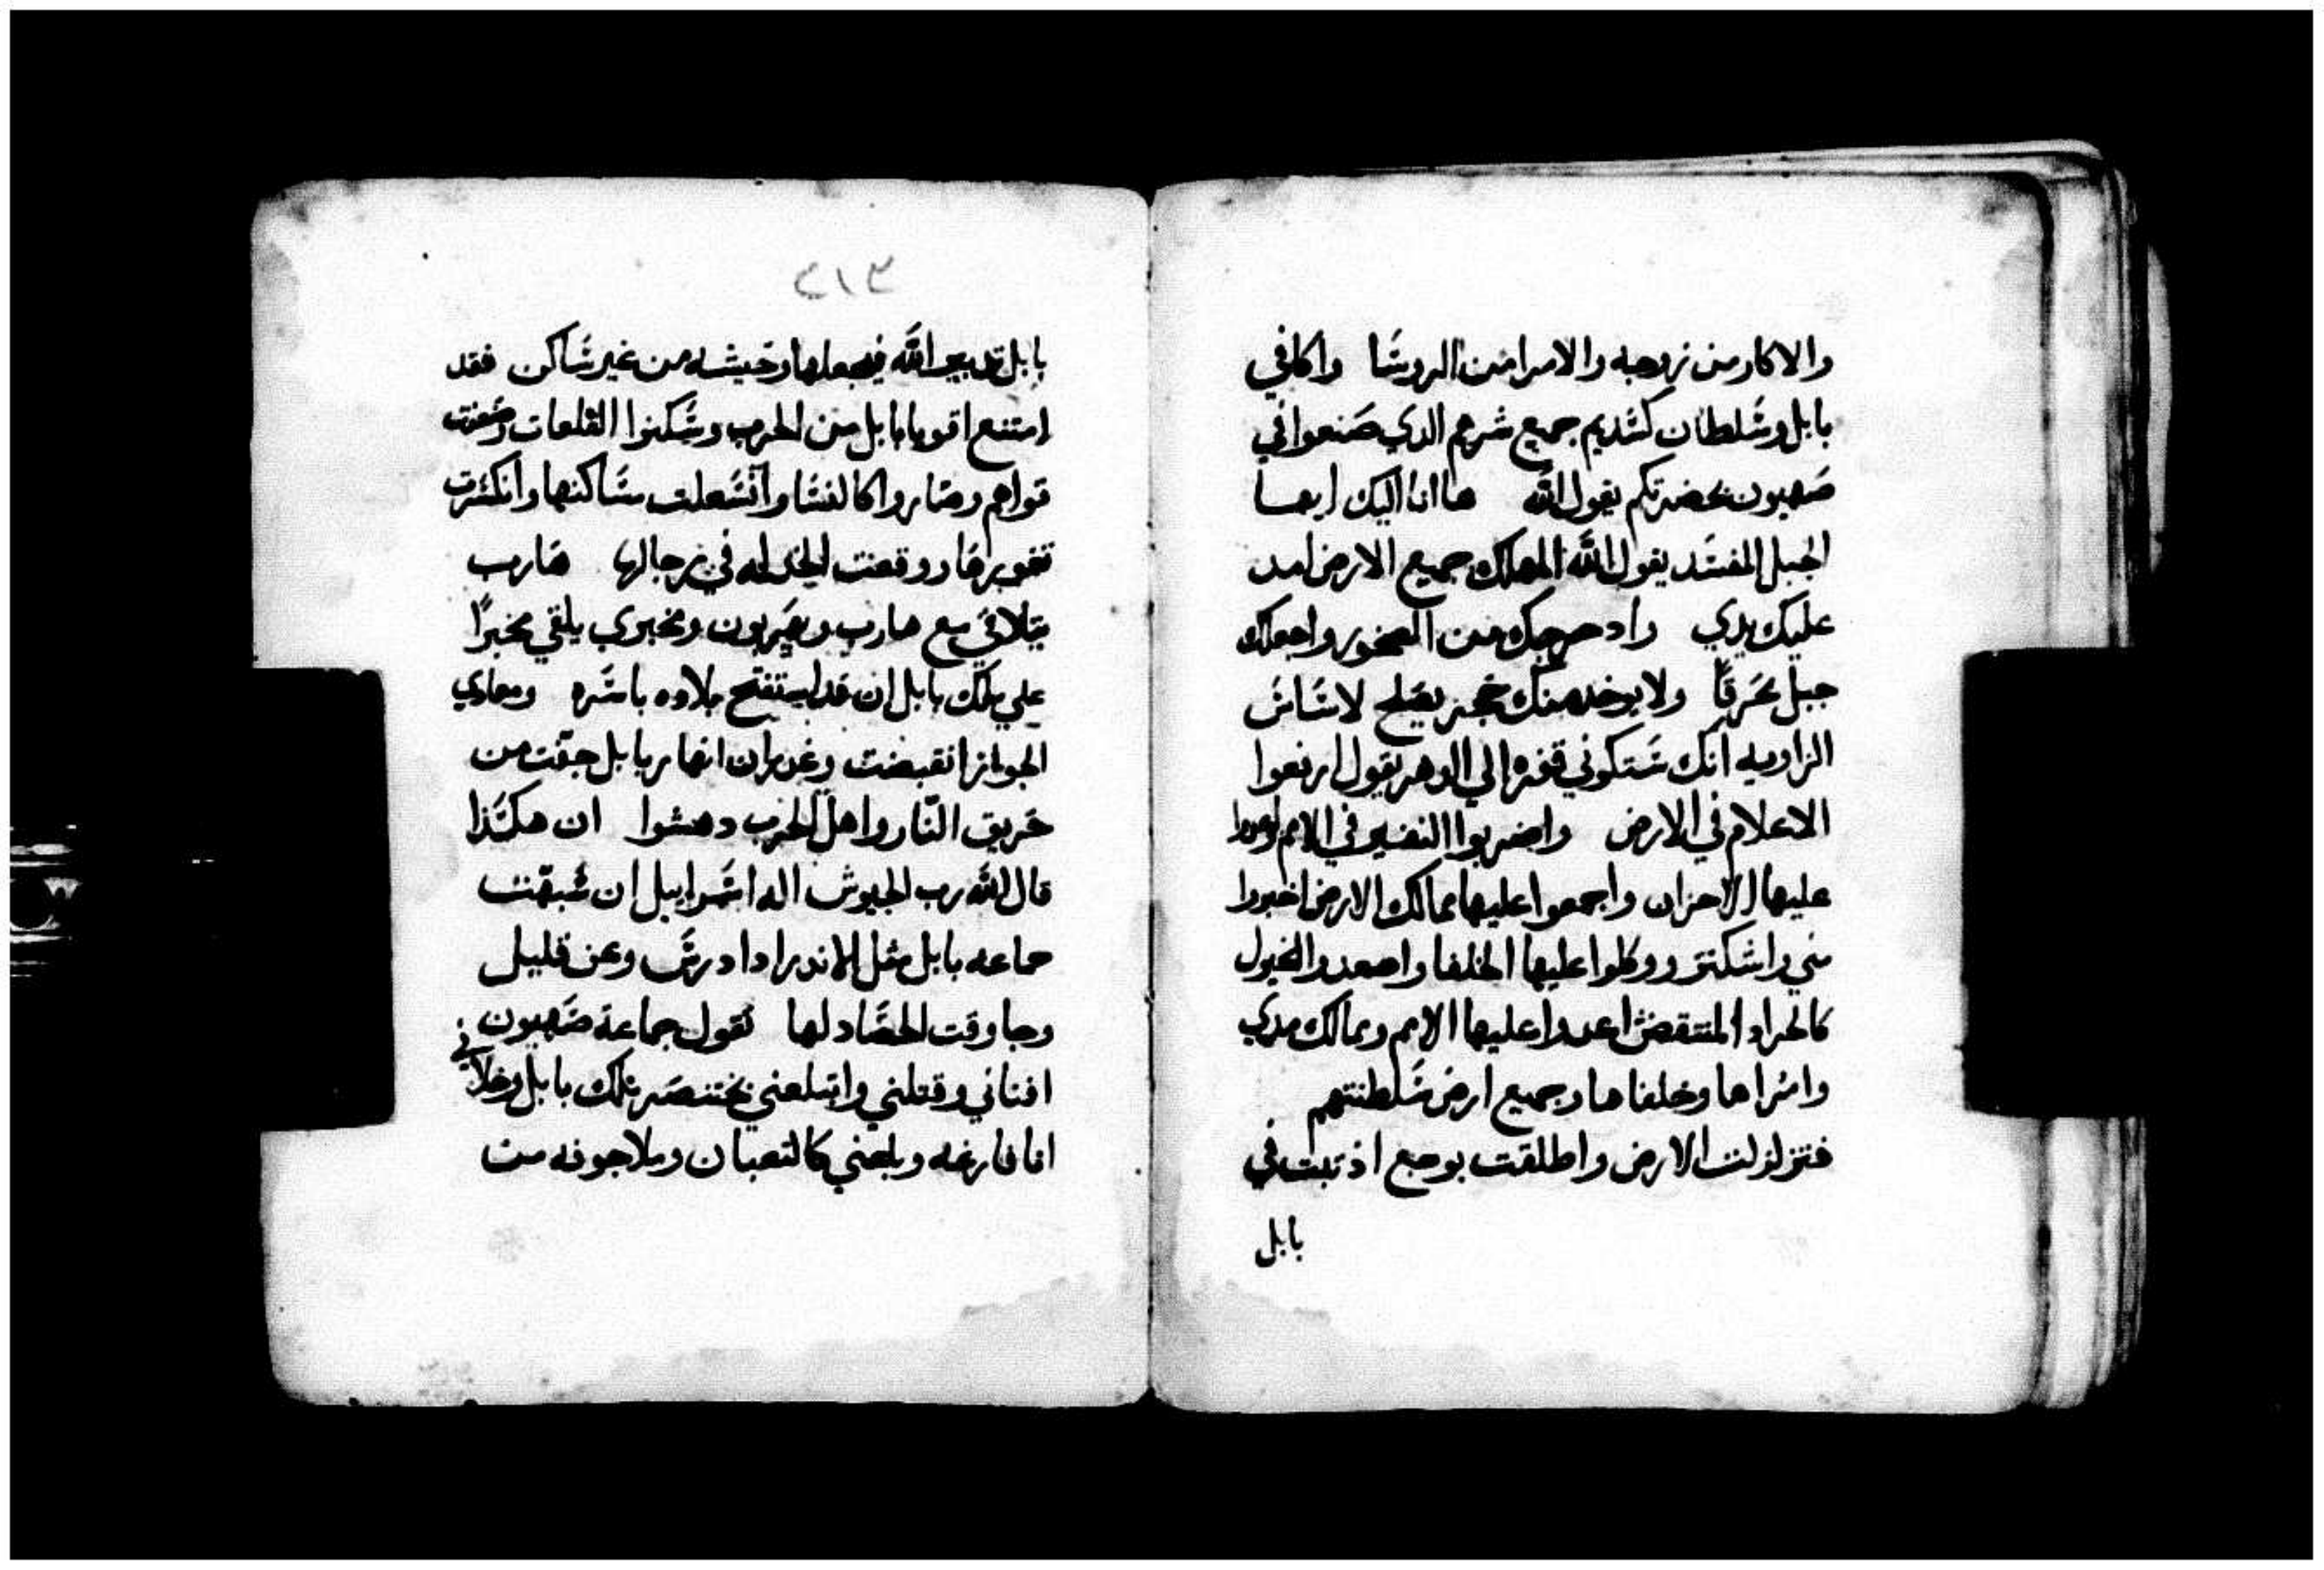 والاكار من زوجه والامرا من الروسَا واكافي
بابل وسَلطان كشديم جميع شرهم الدي صَنعوا في
صَهيون بحضرتكم يقول اللّه هاانا اليك ايها
الجبل المفسَد يقول اللَّه المهلك جميع الارض امد
عليك يدي وادحرجك من الصخور واجعلك
جبل محَرقًا ولا يوخد منك حجر يصَلح لاسَاسَ
الزاويه انك سَتكوني قفره الي الدهر يقول ارفعوا
الاعلام في الارض واضربوا النفير في الامم واعدوا
عليها الاحزان واجمعوا عليها ممالك الارض اخبروا
مني واسَكنز ووكلوا عليها الخلفا واصعدوا الخيول
كالجراد المنتقض اعدوا عليها الامم وممالك مدي
وامراها وخلفاها وجميع ارض سَلطنتهم
فتزلزلت الارض واطلقت بوجع اذ تبت في
بابل
٣١٣
بابل تدبير اللَّه فيجعلها وحيشه من غير سَاكن فقد
امتنع اقويا بابل من الحرب وسَكنوا القلعات وضعفت
قواهم وصَاروا كالنسَا وانشَعلت مسَاكنها وانكسَرت
نقويرها ووقعت الخدله في رجالها هارب
يتلاقي مع هارب ويصَربون ومخبري يلقي مخبرًا
علي ملك بابل ان قد استفتح بلاده باسَره ومعادي
الجواز انقبضت وغدران انهار بابل جفّت من
حَريق النّار واهل الحَرب دهشوا ان هكَذا
قال اللّه رب الجيوش اله اسَراييل ان شبهّت
جماعه بابل مثل الاندر اذا درسَ وعن قليل
وجا وقت الحصَاد لها تقول جماعة صَهيون
افناني وقتلني وابتلعني بختنصَر ملك بابل وخلاني
انا فارغه وبلعني كالتعبان وملا جوفه من